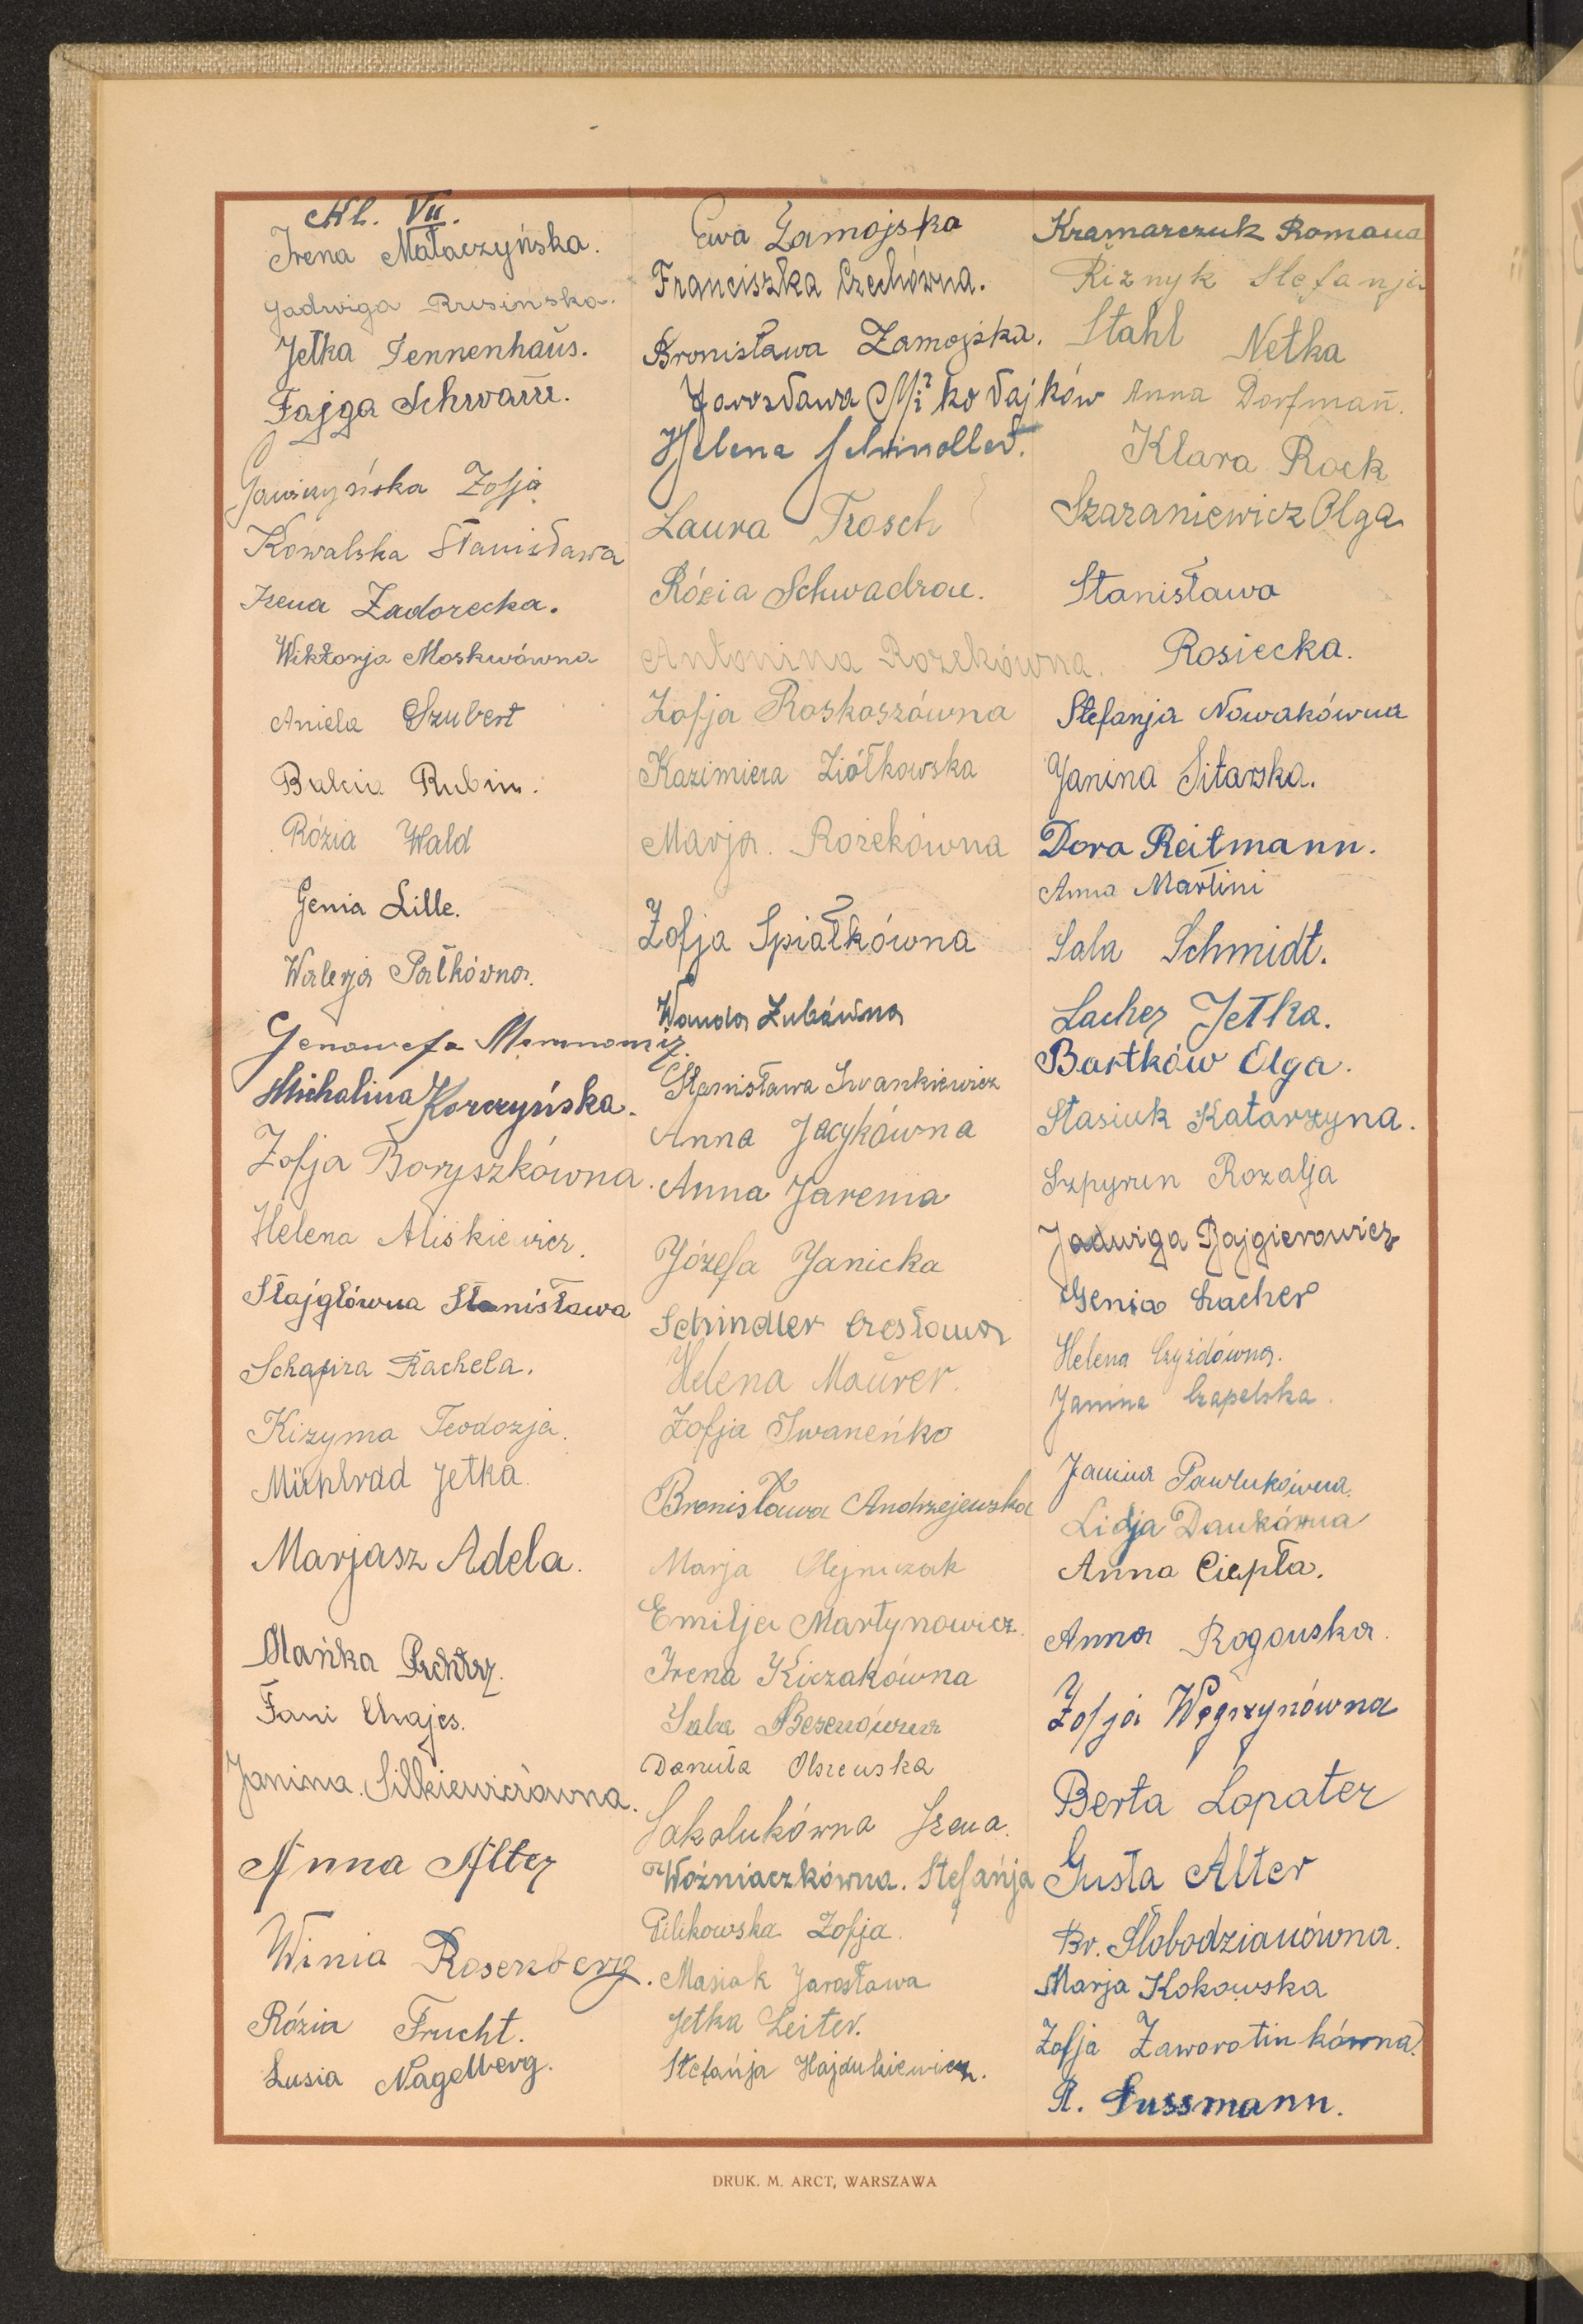 Kl. VII.
Irena Małaczyńska.
Jadwiga Rusińska.
Jetka Tennenhaus.
Fajga Schwarz.
Zofja
Kowalska Stanisława
Irena Zadorecka.
Wiktorja Moskwówna
Aniela Szubert
Rubin.
Rózia Wald
Genia Lille.
Walerja Pałkówna.
Genowefa
Michalina Korczyńska.
Zofja Boryszkówna.
Helena Miśkiewicz.
Stajgłówna Stanisława
Schapira Rachela.
Kizyma Teodozja.
Mühlrad Jetka.
Marjasz Adela.
Mańka
Fani Chajes.
Janina Silkiewiczówna.
Anna Alter
Winia Rosenberg.
Rózia Frucht.
Lusia Nagelberg.
Ewa Zamojska
Franciszka Czechówna.
Bronisława Zamojska.
Jarosława Mikołajków
Helena Schindler.
Laura Trosch
Rózia Schwadron.
Antonina Rożekówna.
Zofja Roskoszówna
Kazimiera Ziółkowska
Marja Rożekówna
Zofja Spiałkówna
Wanda Zubówna
Stanisława Iwankiewicz
Anna Jacykówna
Anna Jarema
Józefa Janicka
Schindler Czesława
Helena Maurer.
Zofja Iwaneńko
Bronisława Andrzejewska
Marja Olejniczak
Emilja Martynowicz.
Irena Kiczakówna
Danuta Olszewska
Sakalukówna Irena.
Woźniaczkówna. Stefanja
Pilikowska Zofja.
Masiak Jarosława
Jetka Leiter.
Stefanja Hajdukiewicz.
Kramarczuk Romana
Riznyk Stefanja
Stahl Netka
Anna Dorfmann.
Klara Rock
Szaraniewicz Olga
Stanisława
Rosiecka.
Stefanja Nowakówna
Janina Sitarska.
Dora Reitmann.
Anna Martini
Sala Schmidt.
Lacher Jetka.
Bartków Olga.
Stasiuk Katarzyna.
Szpyrun Rozalja
Jadwiga Bajgierowicz
Genia Lacher
Helena Czyżdówna.
Janina Czapelska.
Janina Pawlukówna.
Lidja Daukówna
Anna Ciepła.
Anna Rogowska.
Zofja Węgrzynówna
Berta Lopater
Gusta Alter
Br. Słobodzianówna.
Marja Kokowska
Zofja Zaworotinkówna.
R. Sussmann.
DRUK. M. ARCT, WARSZAWA